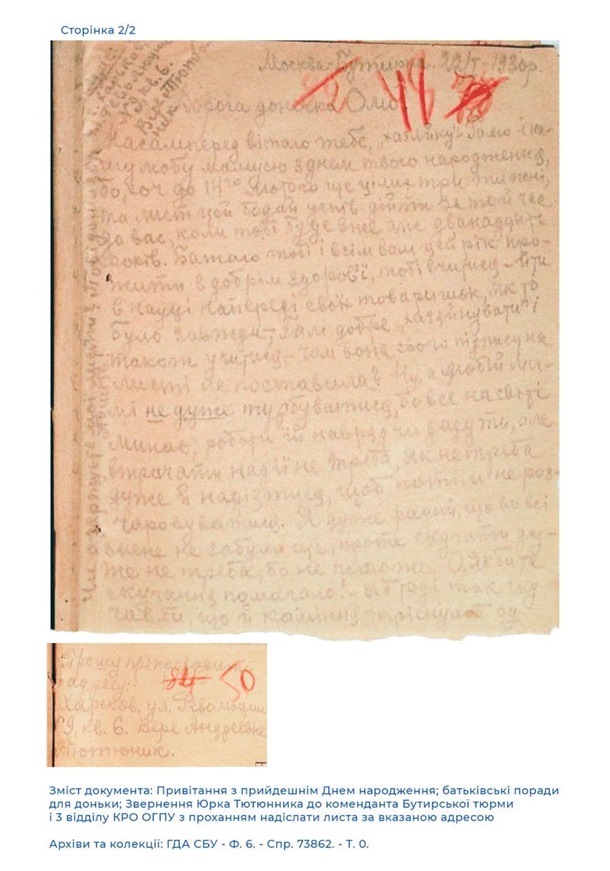 Сторінка 2/2
Москва-Бутирка. 22/I-1930р.
Дорога донечка Омо!
Насамперед вітаю тебе, "хазяйку" Галю і на-
шу любу мамусю з днем твого народження,
бо, хоч до 14го лютого ще цілих три тижні,
та лист цей бодай успів дійти за той час
до вас, коли тобі буде вже аж дванадцять
років. Бажаю тобі і всім вам цей рік про-
жити в добрім здоров'ї, тобі вчитися - йти
в науці напереді своїх товаришок, як то
було завжди, Галі добре "хазяйнувати" і
також учитися - чом вона свого підпису на
листі не поставила? Ну а любій ма-
мі не дуже турбуватися, бо все на світі
минає; роботи їй навряд чи дадуть, але
втрачати надії не треба, як не треба
дуже й надіятися, щоб потім не роз-
чаровуватися. Я дуже радий, що ви всі
мене не забули ще, проте скучати ду-
же не треба, бо не поможе. О, якби те
скучання помагало! - я б тоді так ску-
чав би, що й камінь тріснув би од
48
Прошу препроводить
по адресу:
84 50
Харьков, ул. Революции
№9, кв. 6. Вере Андреевне
Тютюник.
Зміст документа: Привітання з прийдешнім Днем народження; батьківські поради
для доньки; Звернення Юрка Тютюнника до коменданта Бутирської тюрми
і 3 відділу КРО ОГПУ з проханням надіслати листа за вказаною адресою
Архіви та колекції: ГДА СБУ - Ф. 6. - Спр. 73862. - Т. 0.